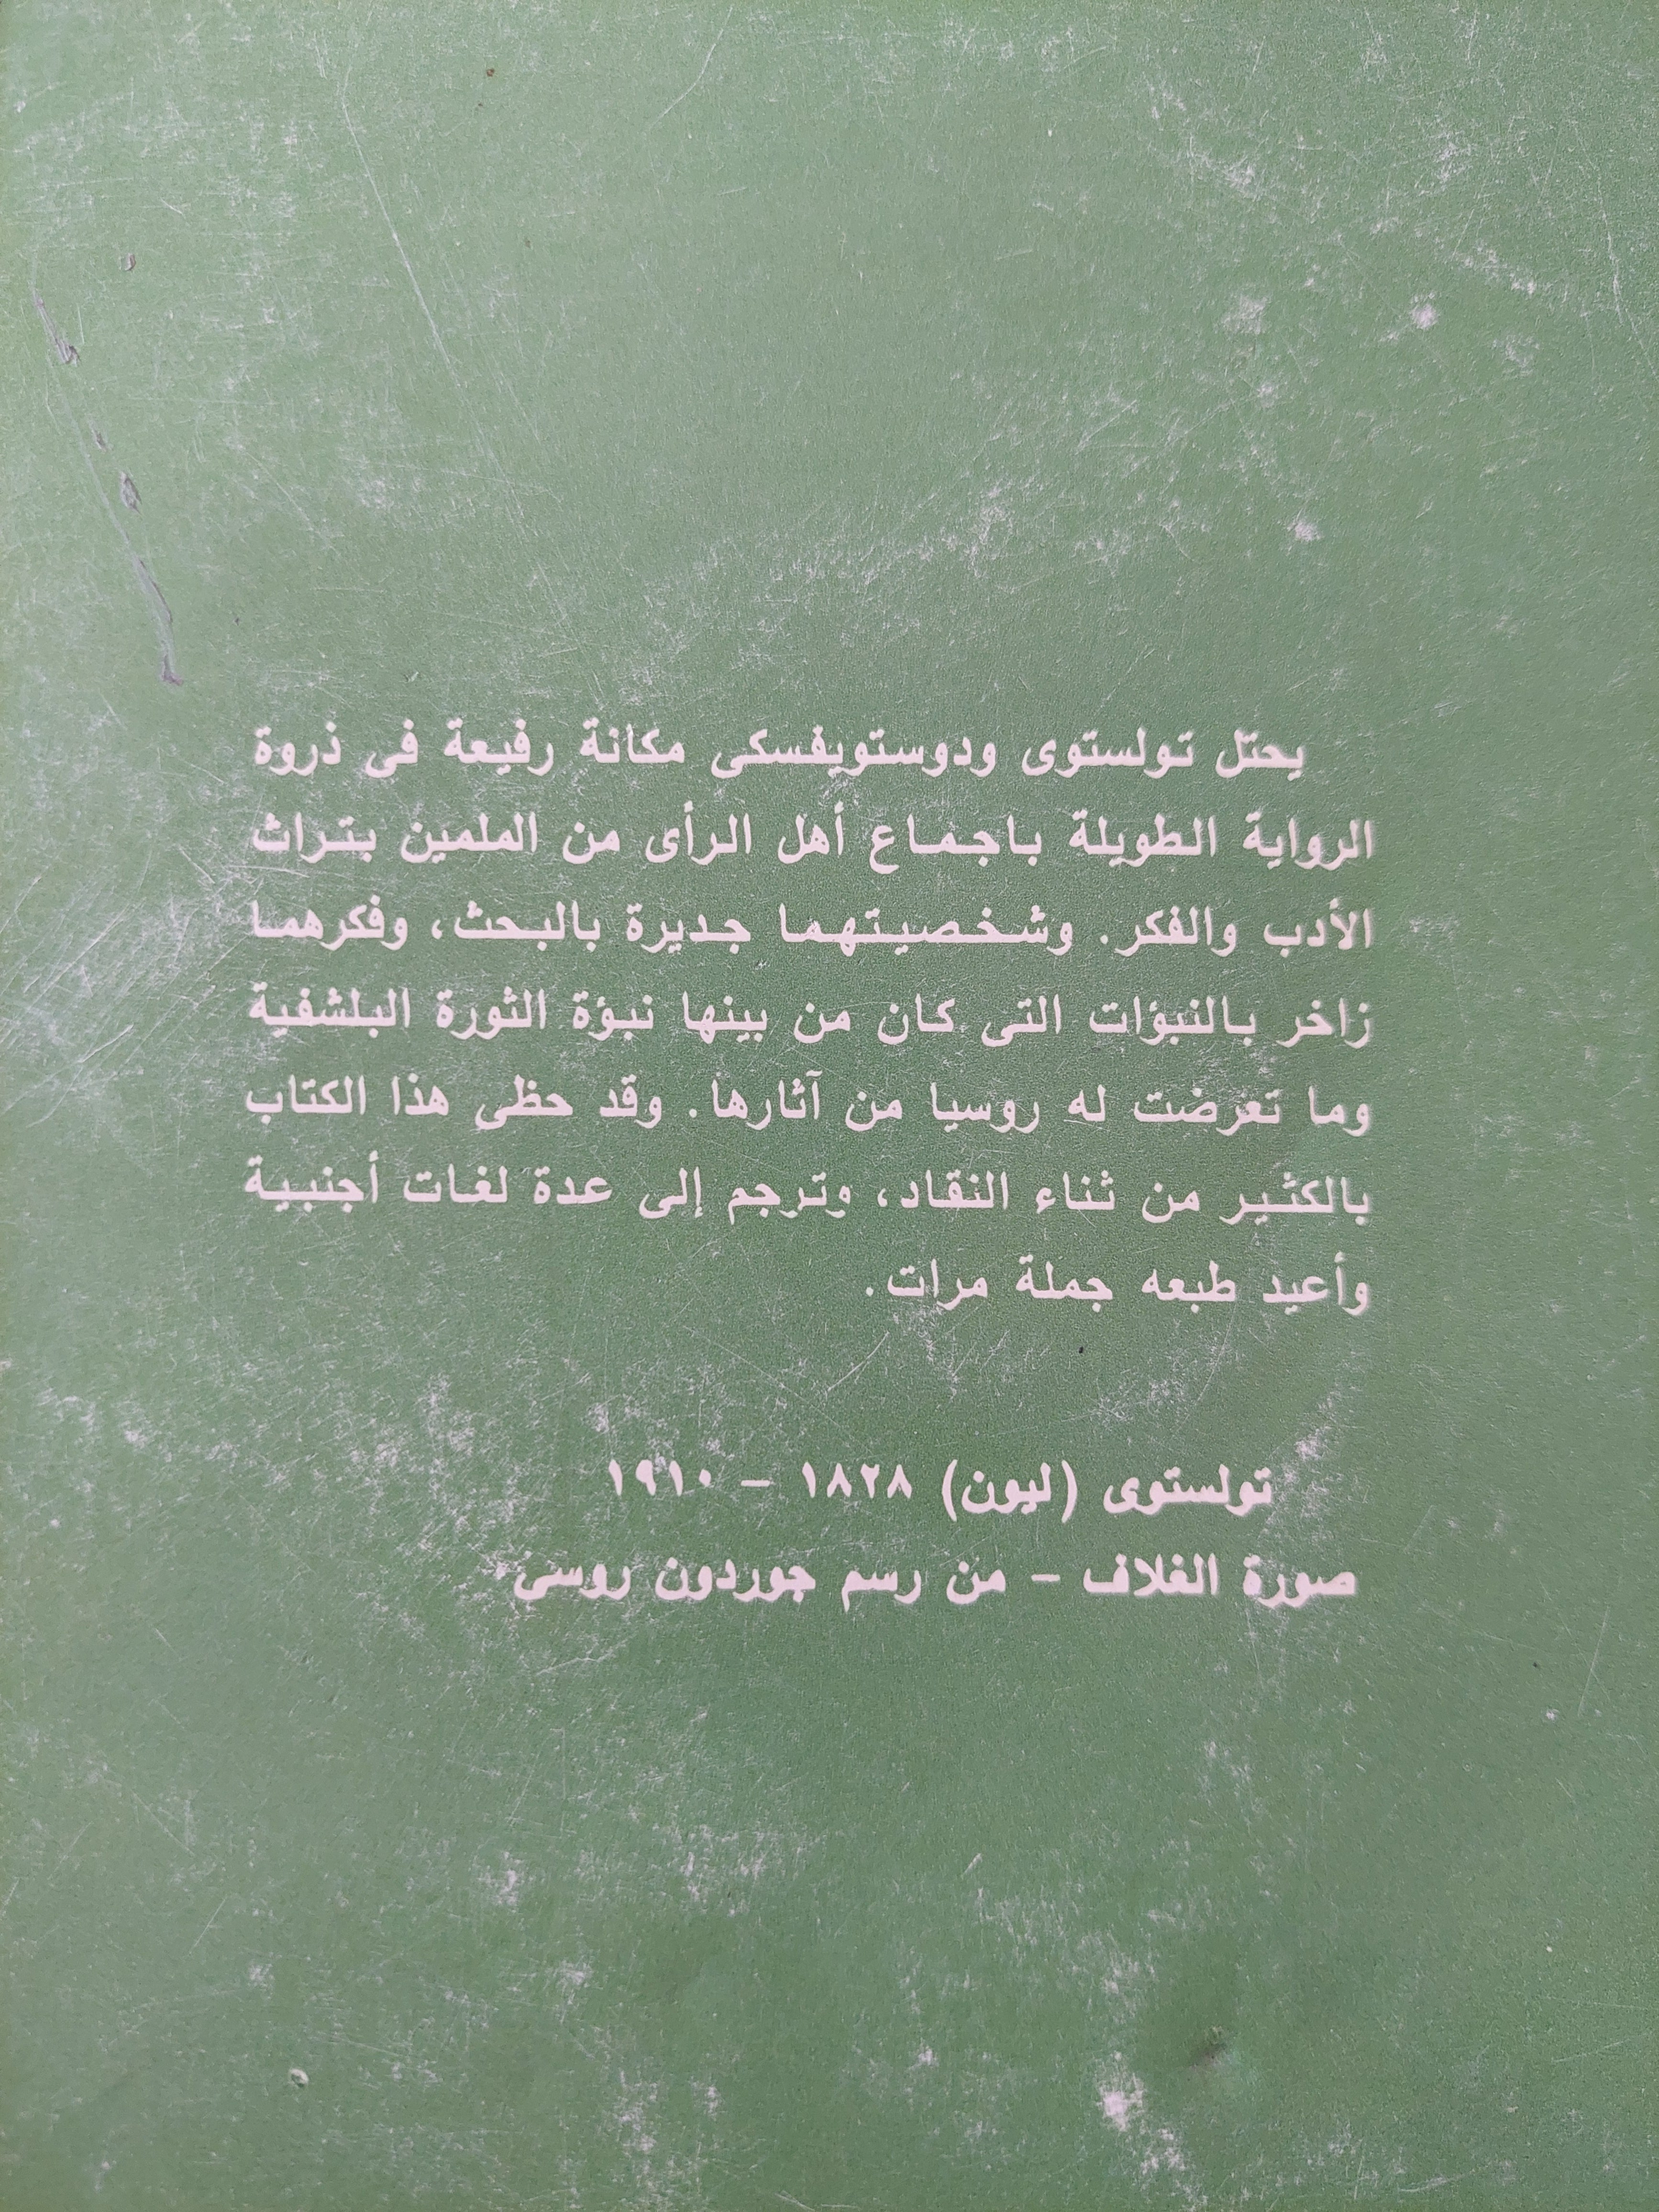 يحتل تولستوى ودوستويفسكى مكانة رفيعة فى ذروة
الرواية الطويلة باجماع أهل الرأى من الملمين بتراث
الأدب والفكر. وشخصيتهما جديرة بالبحث، وفكرهما
زاخر بالنبؤات التى كان من بينها نبؤة الثورة البلشفية
وما تعرضت له روسيا من آثارها. وقد حظى هذا الكتاب
بالكثير من ثناء النقاد، وترجم إلى عدة لغات أجنبية
وأعيد طبعه جملة مرات.
تولستوى (ليون) ١٨٢٨ - ١٩١٠
صورة الغلاف - من رسم جوردون روسى